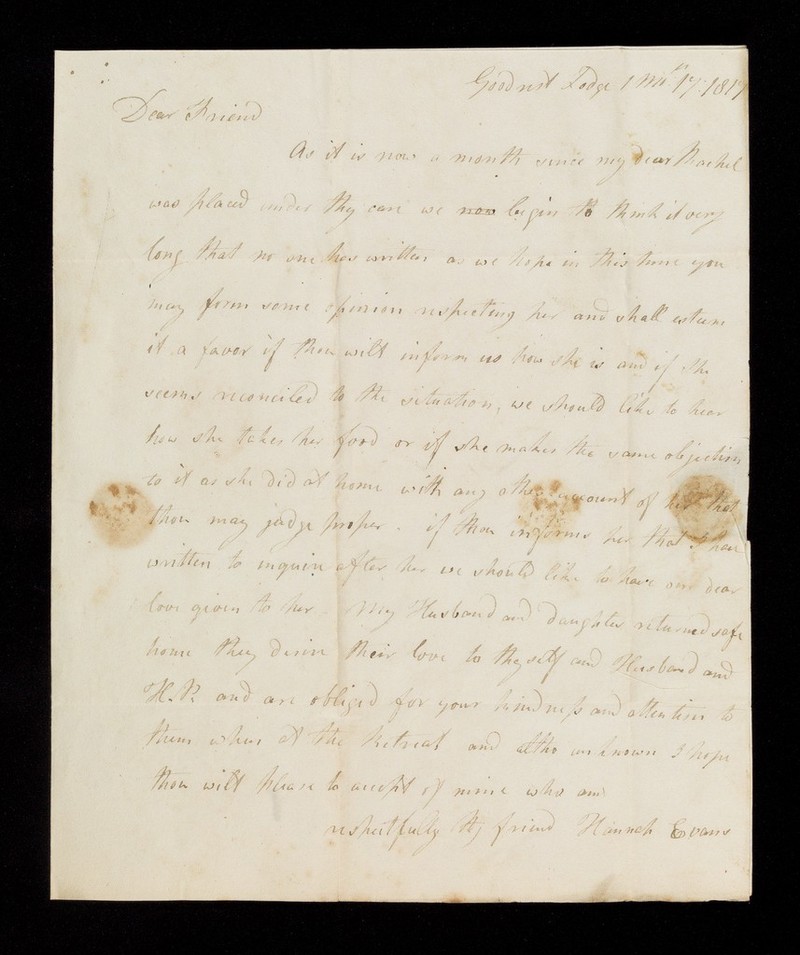 Goodrest Lodge 1 Mth 17. 1817
Dear Friend
As it is now a month since my dear Rachel
was placed under thy care we now begin to think it very
long that no one has written as we hope in this time you
may form some opinion respecting her and shall esteem
it a favor if thou wilt inform us how she is and if she
seems reconciled to the situation, we should like to hear
how she takes her food or if she makes the same objection
to it as she did at home with any other account of her that
thou may judge proper. if thou informs her that I have
written to inquire after her we should like to have our dear
love given to her. My Husband and daughter returned safe
home they desire their love to thyself and Husband and
H.P. and are obliged for your kindness and attention to
them when at the Retreat and altho unknown I hope
thou wilt please to accept of mine who am
respectfully thy friend Hannah Evans